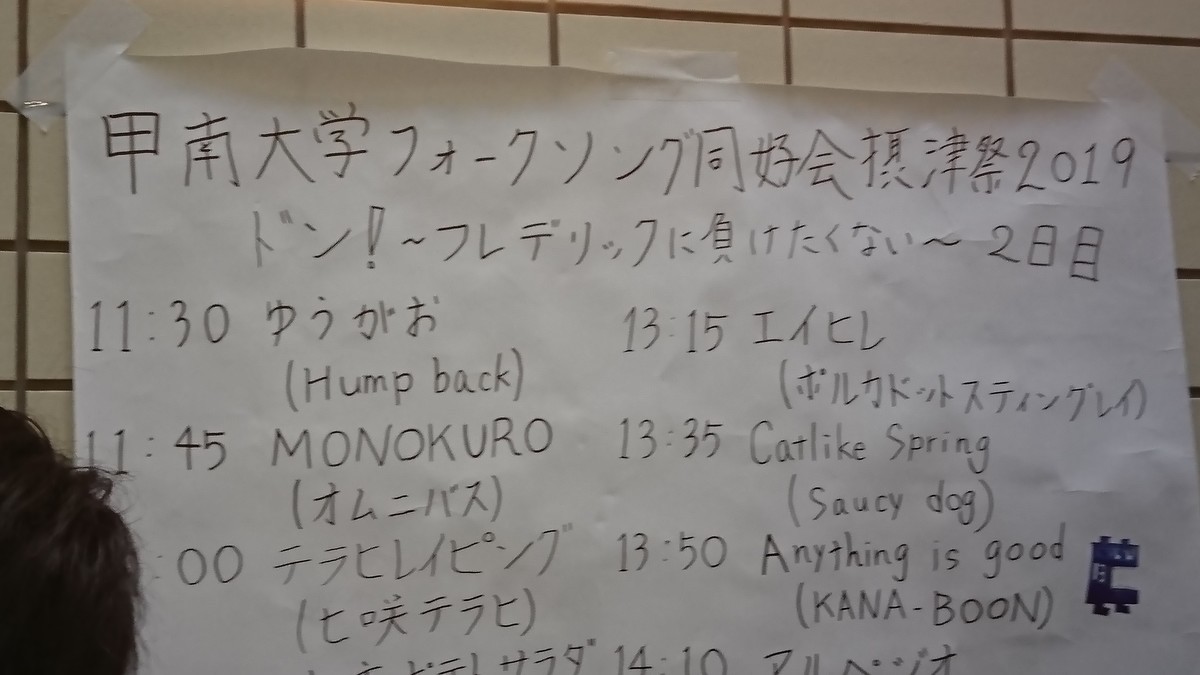 甲南大学フォークソング同好会摂津祭2019
ドン!~フレデリックに負けたくない~ 2日目
11:30 ゆうがお
(Hump back)
11:45 MONOKURO
(オムニバス)
:00 テラヒレイピング
(七咲テラヒ)
サラダ
13:15 エイヒレ
(ポルカドットスティングレイ)
13:35 Catlike Spring
(Saucy dog)
13:50 Anything is good
(KANA-BOON)
14:10 アルペジオ